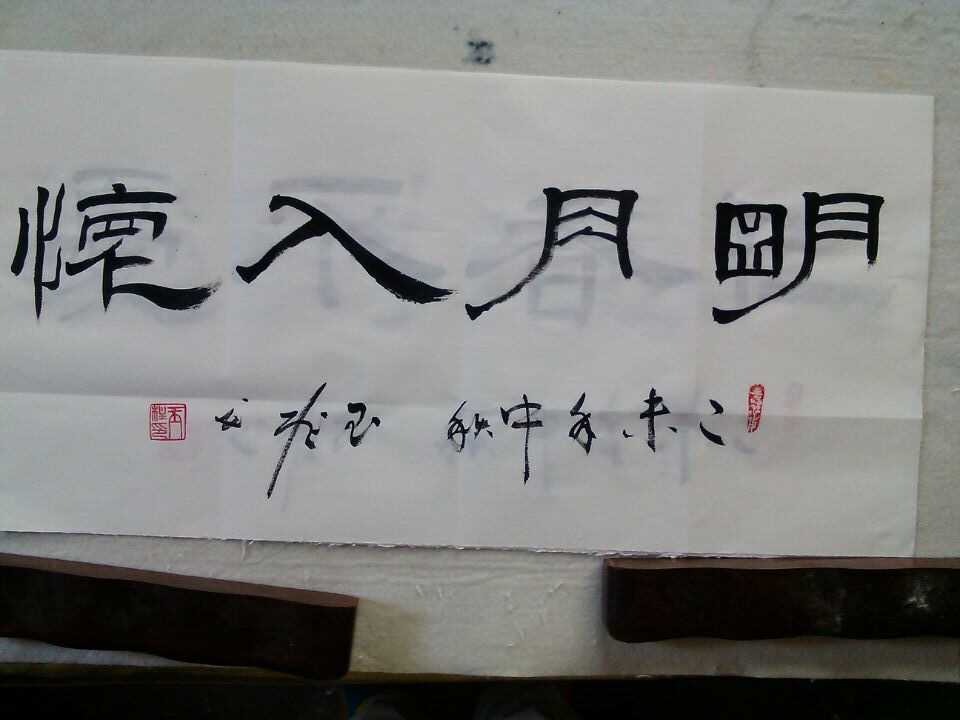 明月入懷
乙未年中秋 玉 书